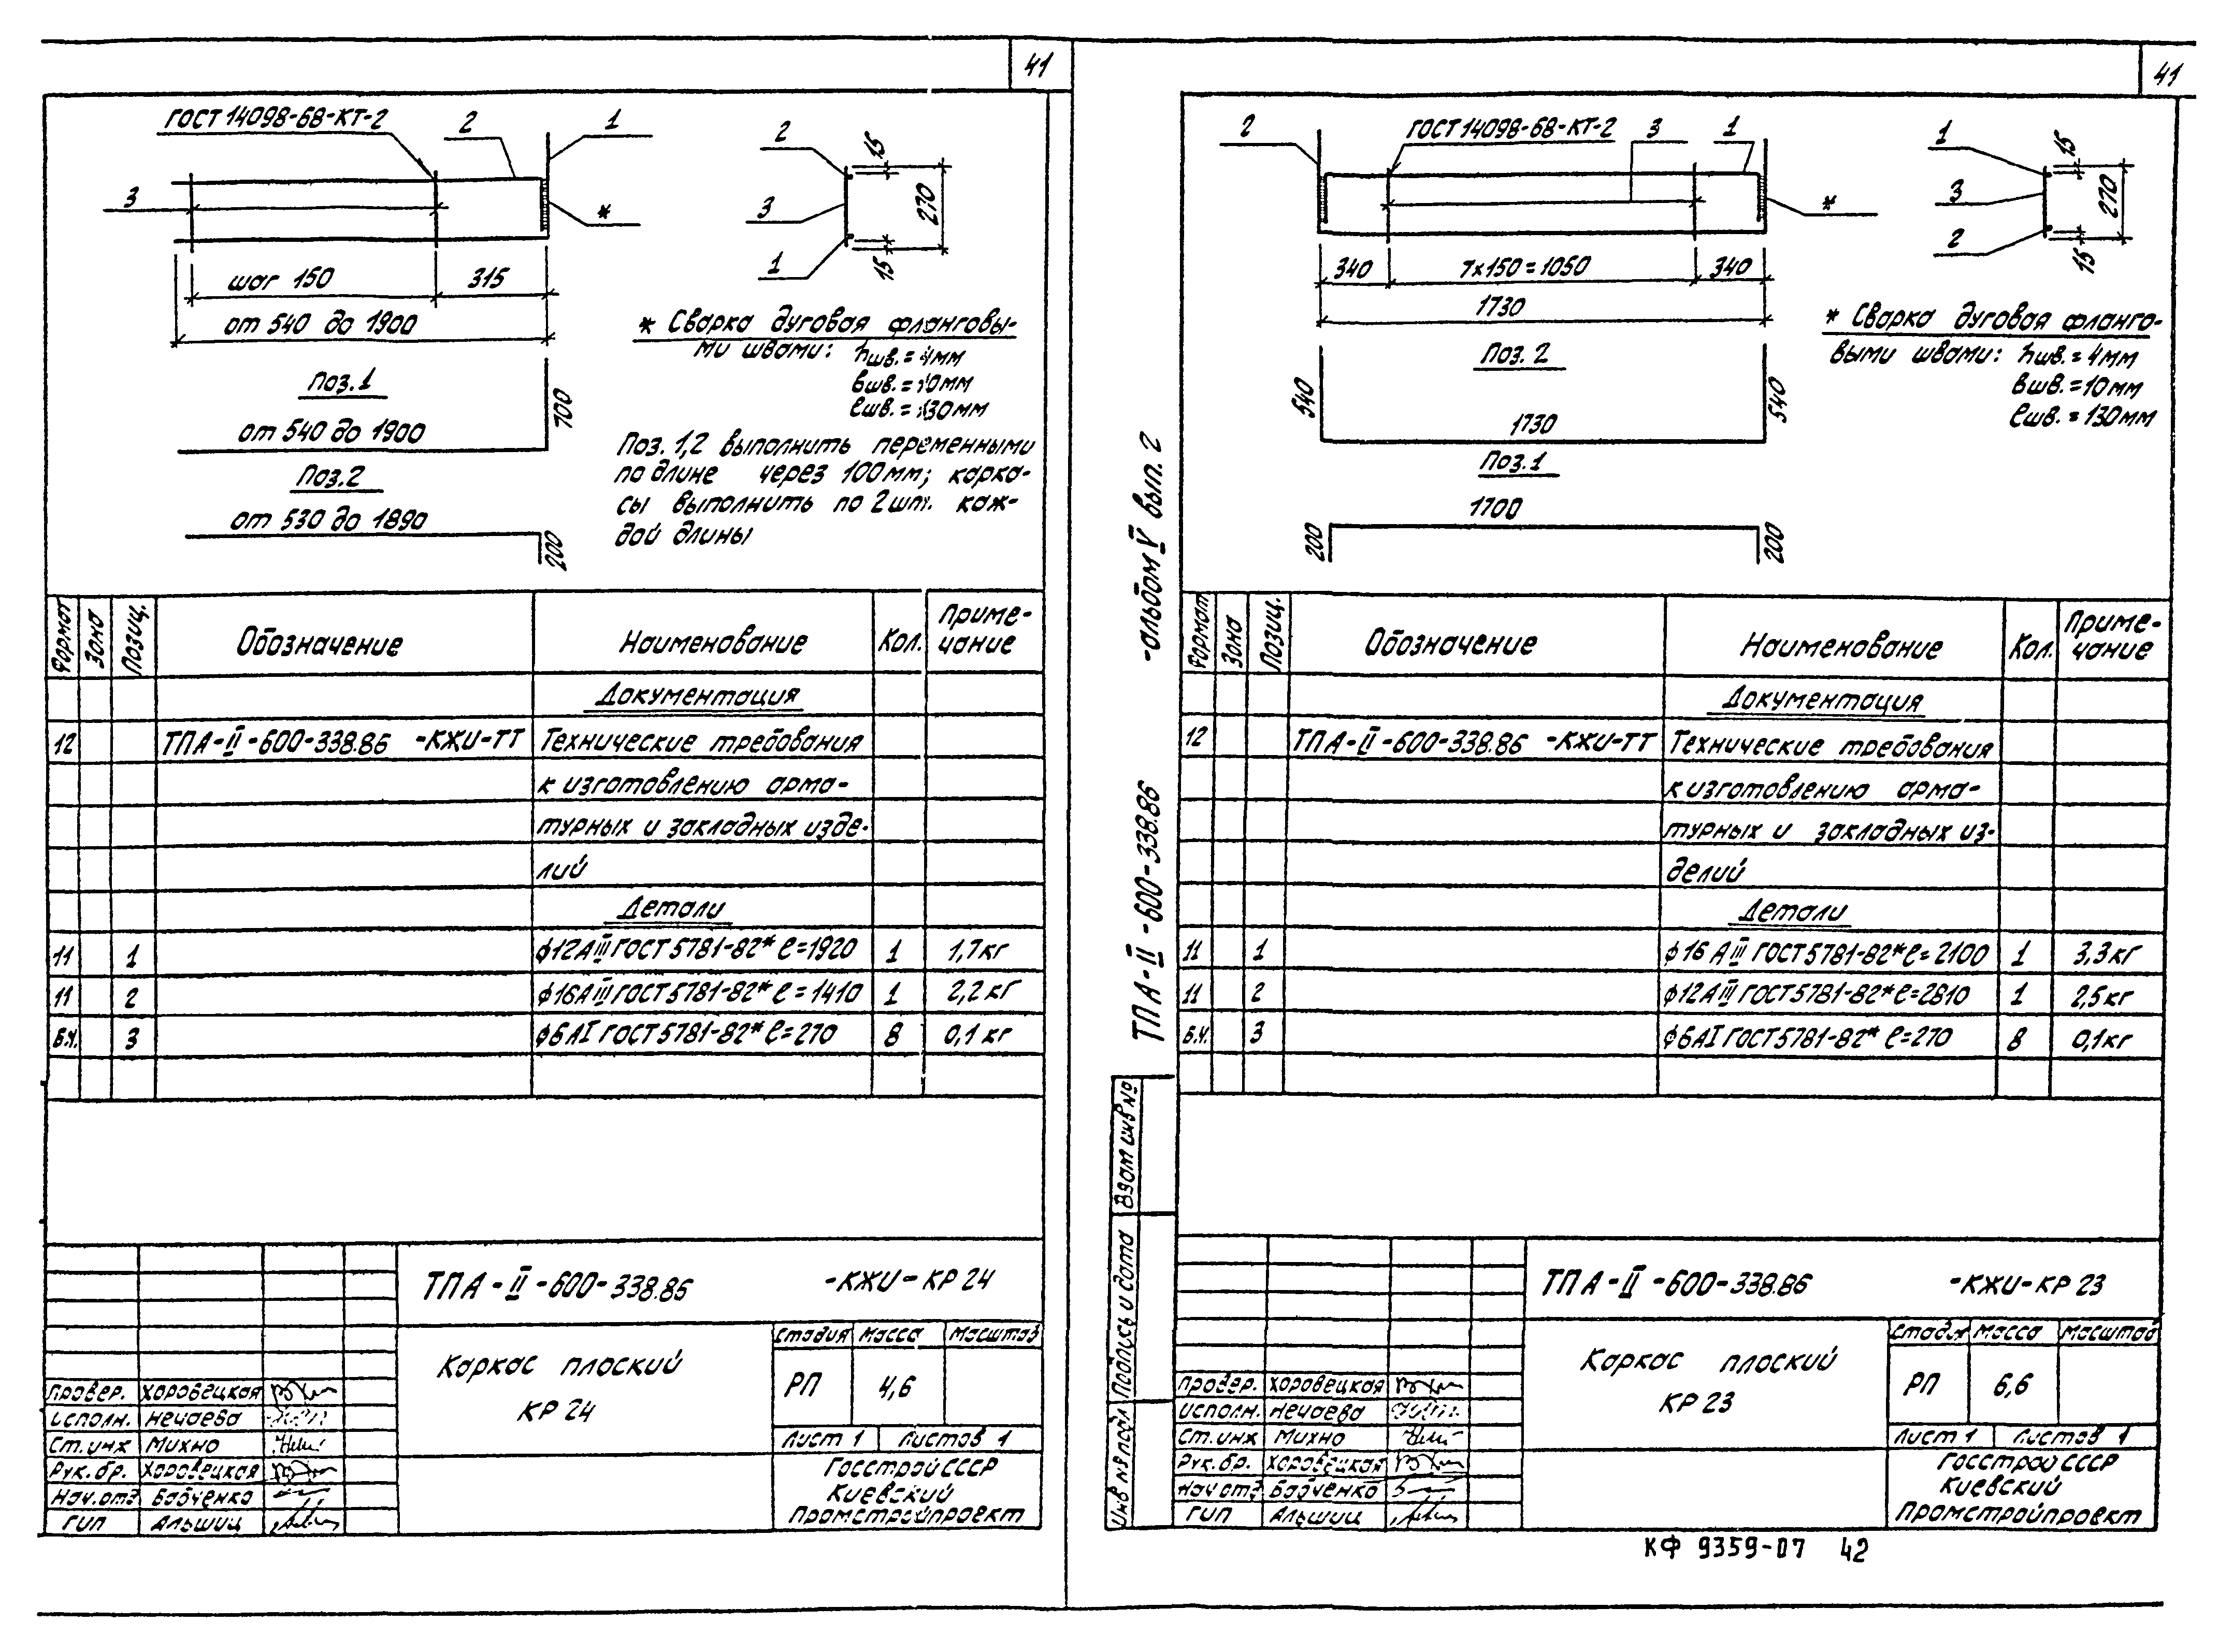 41
ГОСТ 14098-68-КТ-2
2
1
3
*
шаг 150
315
от 540 до 1900
Поз.1
от 540 до 1900
700
Поз.2
от 530 до 1890
200
2
3
1
15
270
15
* Сварка дуговая фланговы-
ми швами: hшв. = 4мм
bшв. = 10мм
ℓшв. = 130мм
Поз. 1,2 выполнить переменными
по длине через 100мм; карка-
сы выполнить по 2шт. каж-
дой длины
Формат
Зона
Позиц.
Обозначение
Наименование
Кол.
Приме-
чание
Документация
12 ТПА-II-600-338.86 -КЖИ-ТТ Технические требования
к изготовлению арма-
турных и закладных изде-
лий
Детали
11 1 ϕ12АIII ГОСТ 5781-82* ℓ=1920 1 1,7кг
11 2 ϕ16АIII ГОСТ 5781-82* ℓ=1410 1 2,2кг
Б.Ч. 3 ϕ6АI ГОСТ 5781-82* ℓ=270 8 0,1кг
ТПА-II-600-338.86 -КЖИ-КР 24
Каркас плоский
КР 24
Стадия Масса Масштаб
РП 4,6
Лист 1 Листов 1
Госстрой СССР
Киевский
Промстройпроект
Провер. Хоровецкая
Исполн. Нечаева
Ст.инж Михно
Рук.бр. Хоровецкая
Нач.отд Бабченко
ГИП Альшиц
41
2
ГОСТ 14098-68-КТ-2
3
1
*
340
7х150=1050
340
1730
Поз.2
540
1730
540
Поз.1
1700
200
200
1
3
2
15
270
15
* Сварка дуговая фланго-
выми швами: hшв. = 4мм
bшв. = 10мм
ℓшв. = 130мм
ТПА-II-600-338.86 -альбом V вып. 2
Формат
Зона
Позиц.
Обозначение
Наименование
Кол.
Приме-
чание
Документация
12 ТПА-II-600-338.86 -КЖИ-ТТ Технические требования
к изготовлению арма-
турных и закладных из-
делий
Детали
11 1 ϕ16 АIII ГОСТ 5781-82* ℓ=2100 1 3,3кг
11 2 ϕ12АIII ГОСТ 5781-82* ℓ=2810 1 2,5кг
Б.Ч. 3 ϕ6АI ГОСТ 5781-82* ℓ=270 8 0,1кг
Взам инв №
Подпись и дата
Инв № подл
ТПА-II-600-338.86 -КЖИ-КР 23
Каркас плоский
КР 23
Стадия Масса Масштаб
РП 6,6
Лист 1 Листов 1
Госстрой СССР
Киевский
Промстройпроект
Провер. Хоровецкая
Исполн. Нечаева
Ст.инж Михно
Рук.бр. Хоровецкая
Нач отд Бабченко
ГИП Альшиц
КФ 9359-07 42